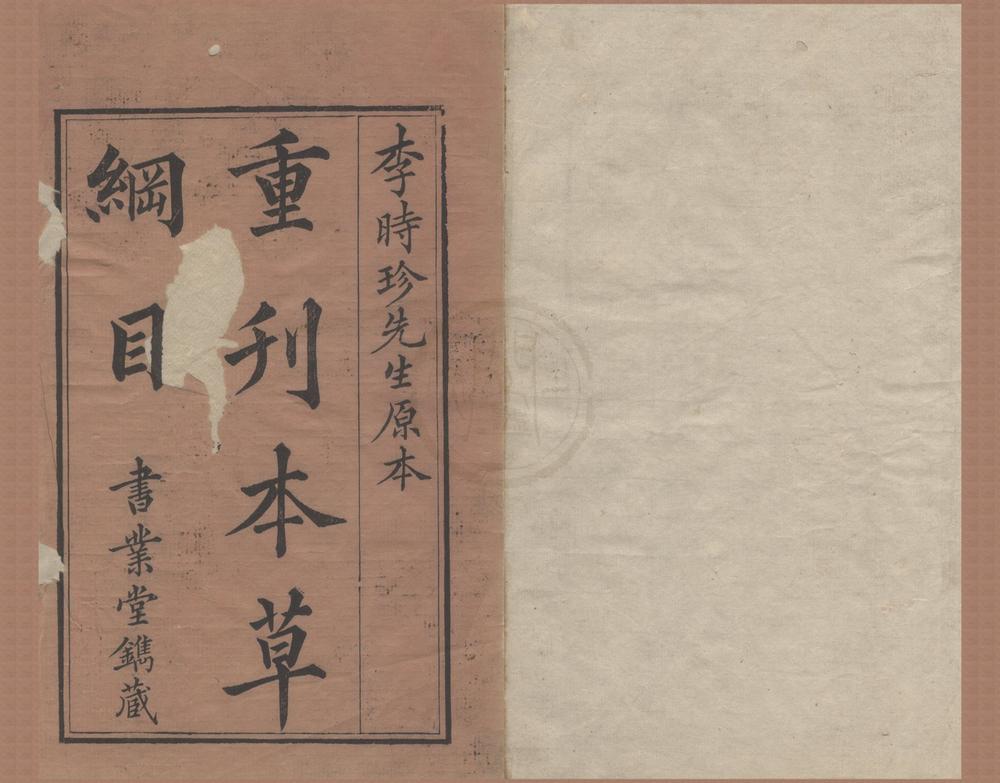 李時珍先生原本
重刊本草
綱目
書業堂鐫蔵